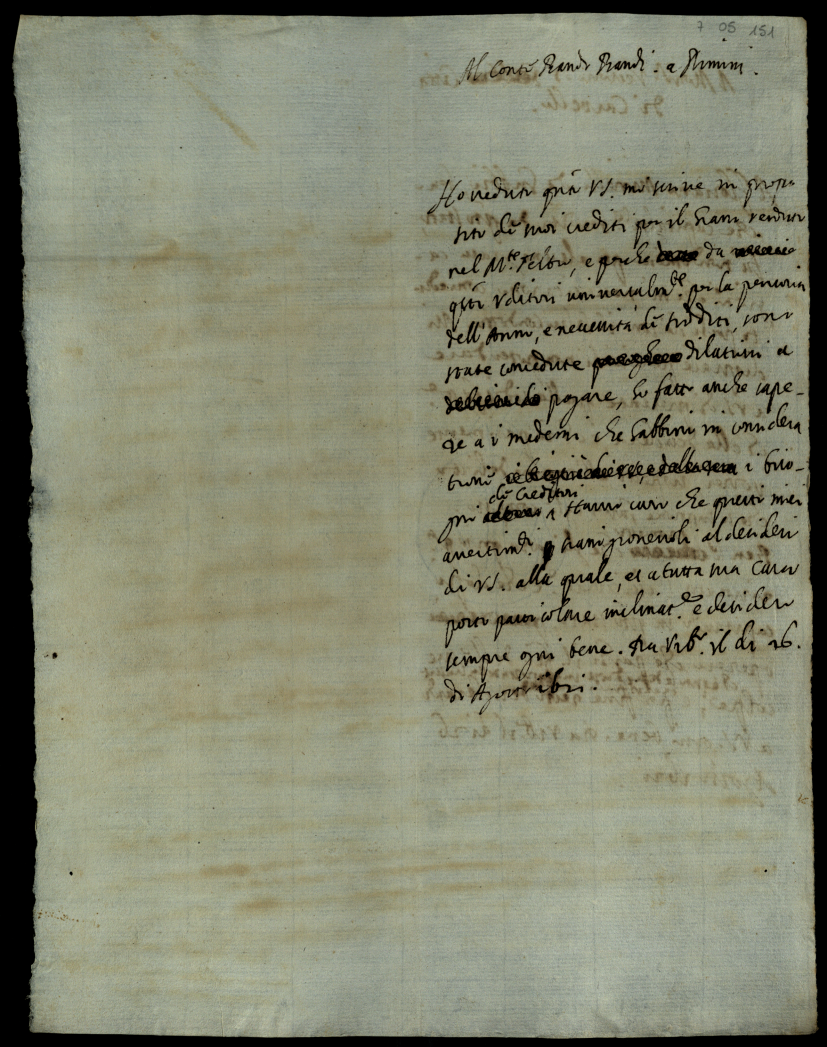 7 05 151
Al Conte Bandi. a Rimini.
Ho veduto q.to VS. mi scrive in propo
sito de suoi crediti per il Grano venduto
nel M.te feltro, e perche da
q.sti Uditori universalm.te per la penuria
dell'Anno, e necessità de sudditi, sono
state concedute dilationi a
pagare, hò fatto anche sape-
re a i medemi che habbino in considera
tione i biso-
gni de Creditori
avertim.ti siano giovevoli al desideri
di VS. alla quale, et a tutta sua Casa
porto particolare inclinat.ne e desidero
sempre ogni bene. Da Urb.o il di 26.
di